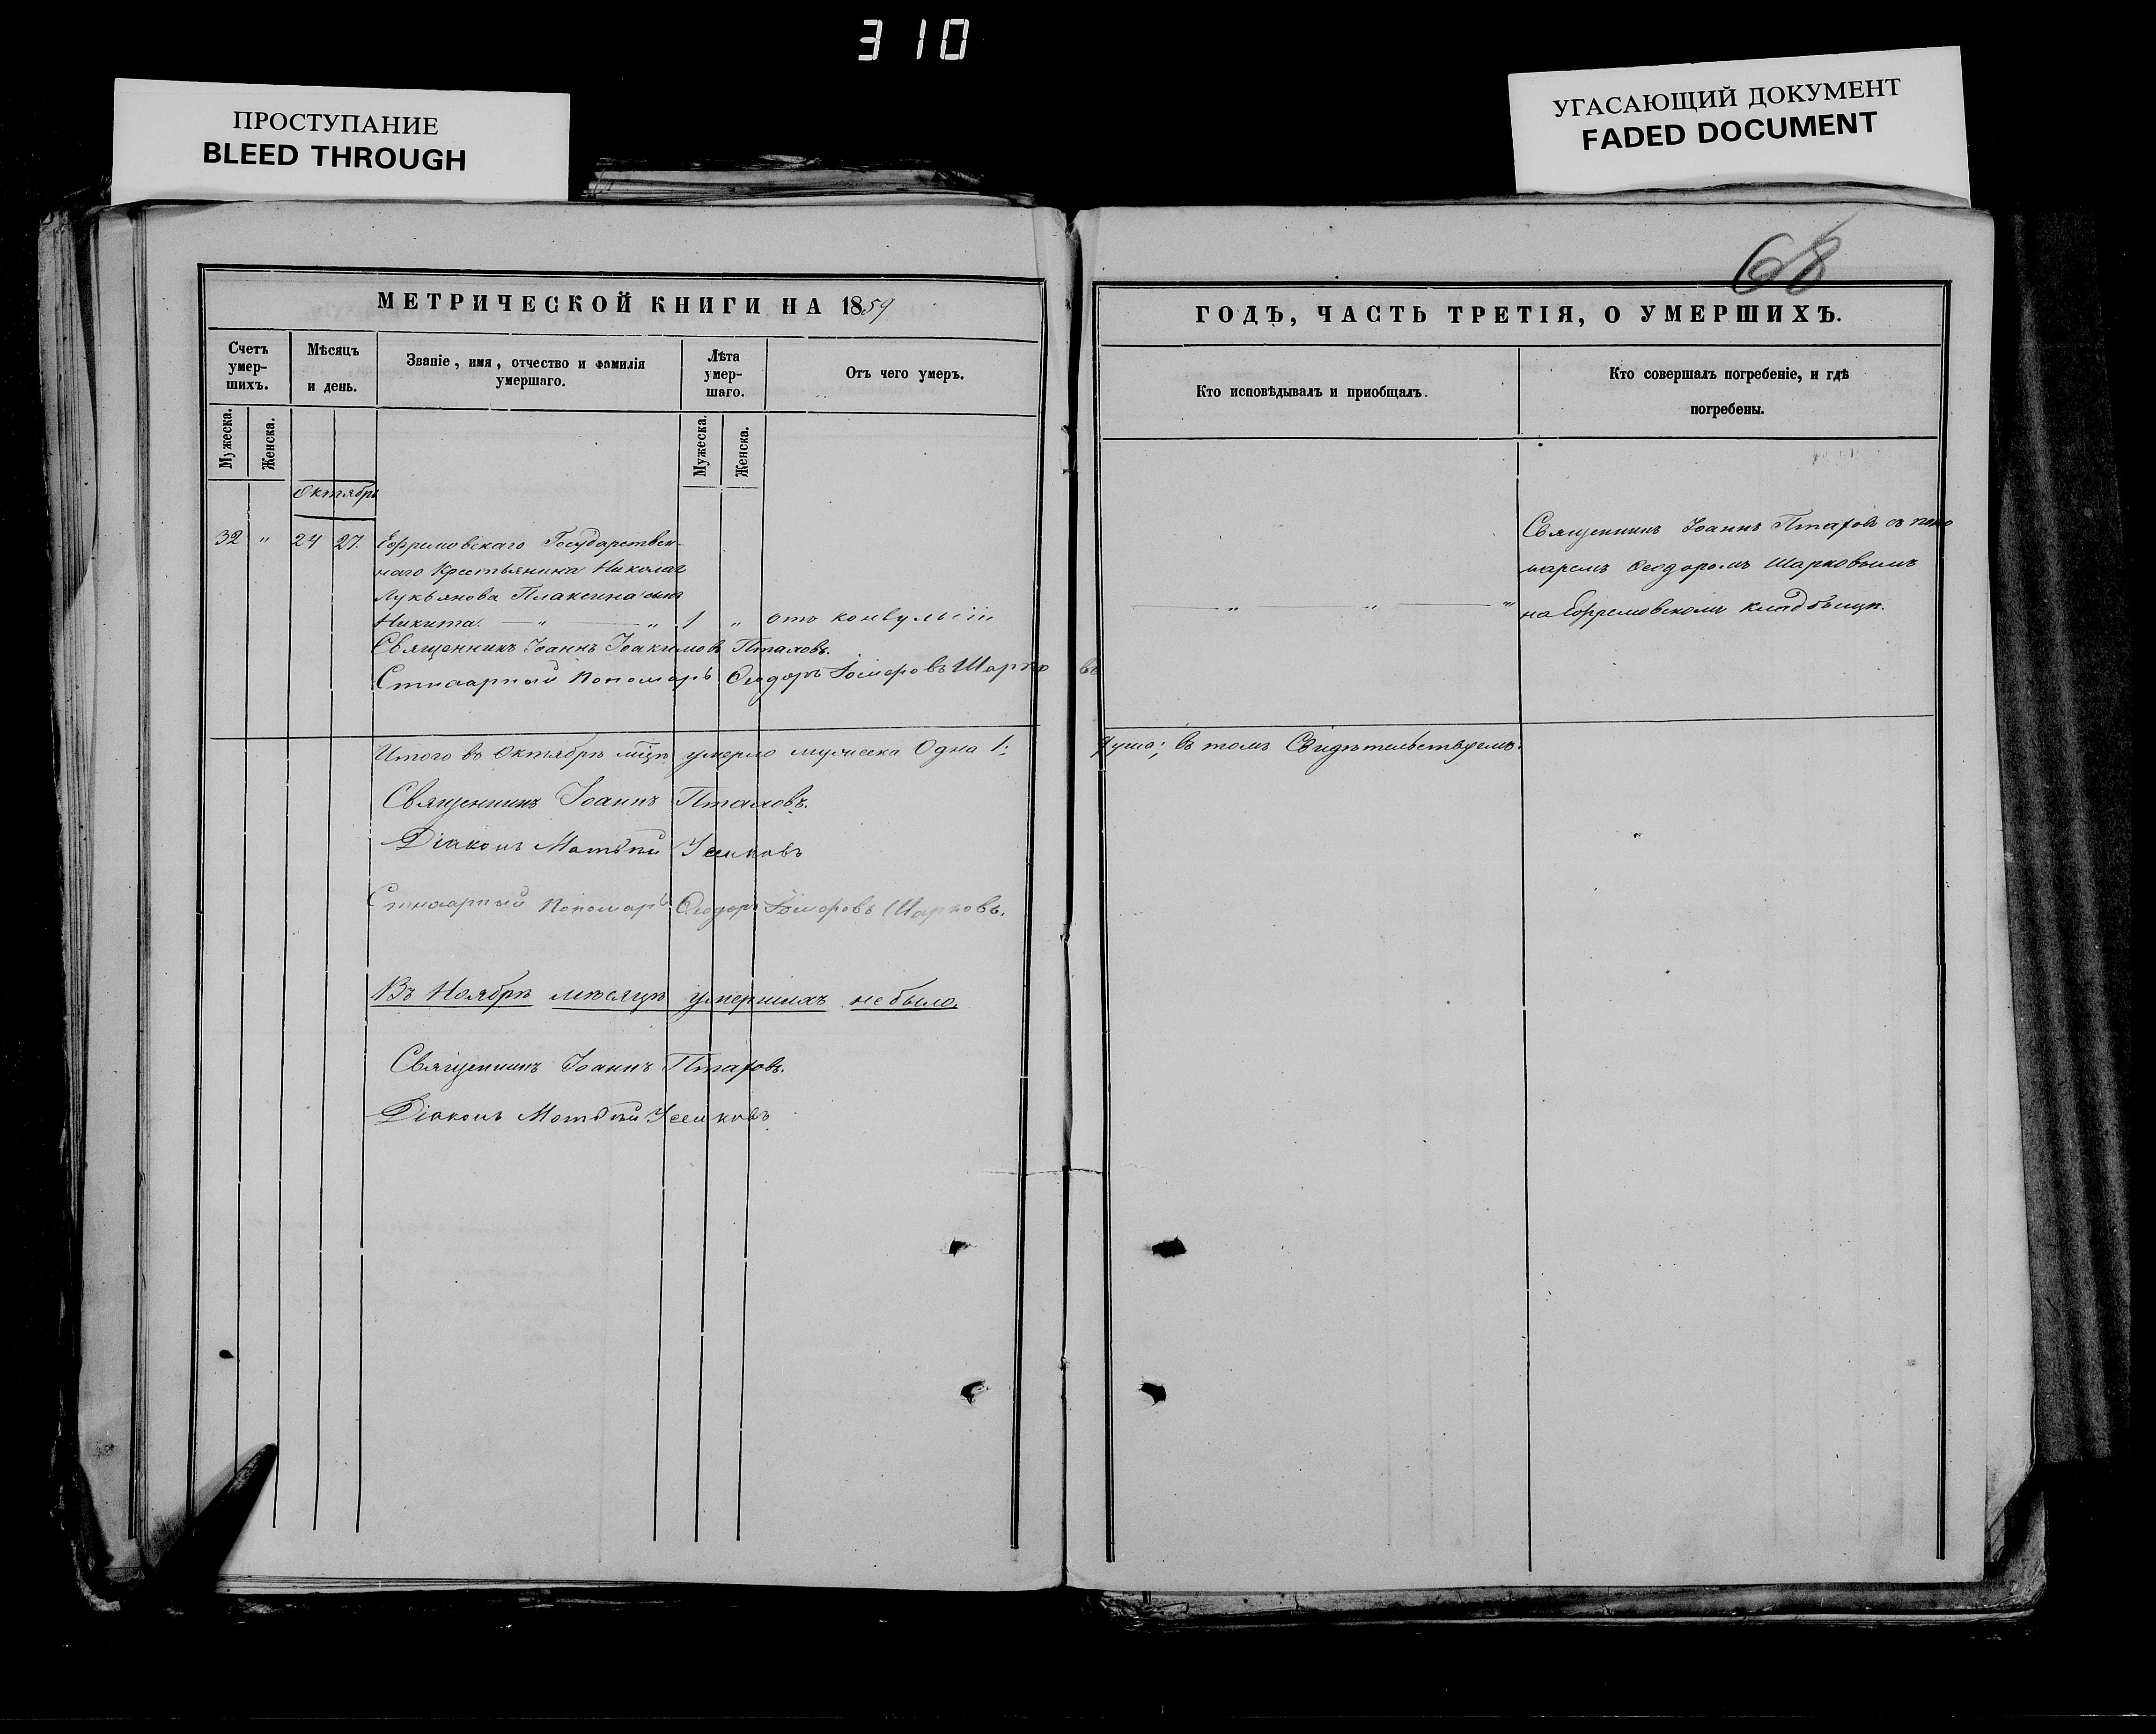 310
ПРОСТУПАНИЕ
BLEED THROUGH
УГАСАЮЩИЙ ДОКУМЕНТ
FADED DOCUMENT
68
МЕТРИЧЕСКОЙ КНИГИ НА 1859
Счетъ умер-шихъ.
Мѣсяцъ и день.
Званіе, имя, отчество и фамилія умершаго.
Лѣта умер-шаго.
Отъ чего умеръ.
Мужеска.
Женска.
Мужеска.
Женска.
Октябрь
32 " 24 27. Ефремовскаго Государствен-
наго Крестьянина Николая
Лукьянова Плаксина сынъ
Никита. — " — " 1 " отъ конвульсіи
Священникъ Іоаннъ Іоакимовъ Птаховъ.
Стихарный Пономарь Ѳеодоръ Шарковъ
Итого въ Октябрѣ мцѣ умерло мужеска Одна 1:
Священникъ Іоаннъ Птаховъ.
Діаконъ Матѳей
Стихарный Пономарь Ѳеодоръ Шарковъ.
Въ Ноябрѣ мѣсяцѣ умершихъ не было.
Священникъ Іоаннъ Птаховъ.
Діаконъ Матѳей
ГОДЪ, ЧАСТЬ ТРЕТІЯ, О УМЕРШИХЪ.
Кто исповѣдывалъ и пріобщалъ.
Кто совершалъ погребеніе, и гдѣ
погребены.
Священникъ Іоаннъ Птаховъ съ поно
маремъ Ѳеодоромъ Шарковымъ
— " — " — "
на Ефремовскомъ кладбищѣ.
душа; въ томъ Свидѣтельствуемъ.